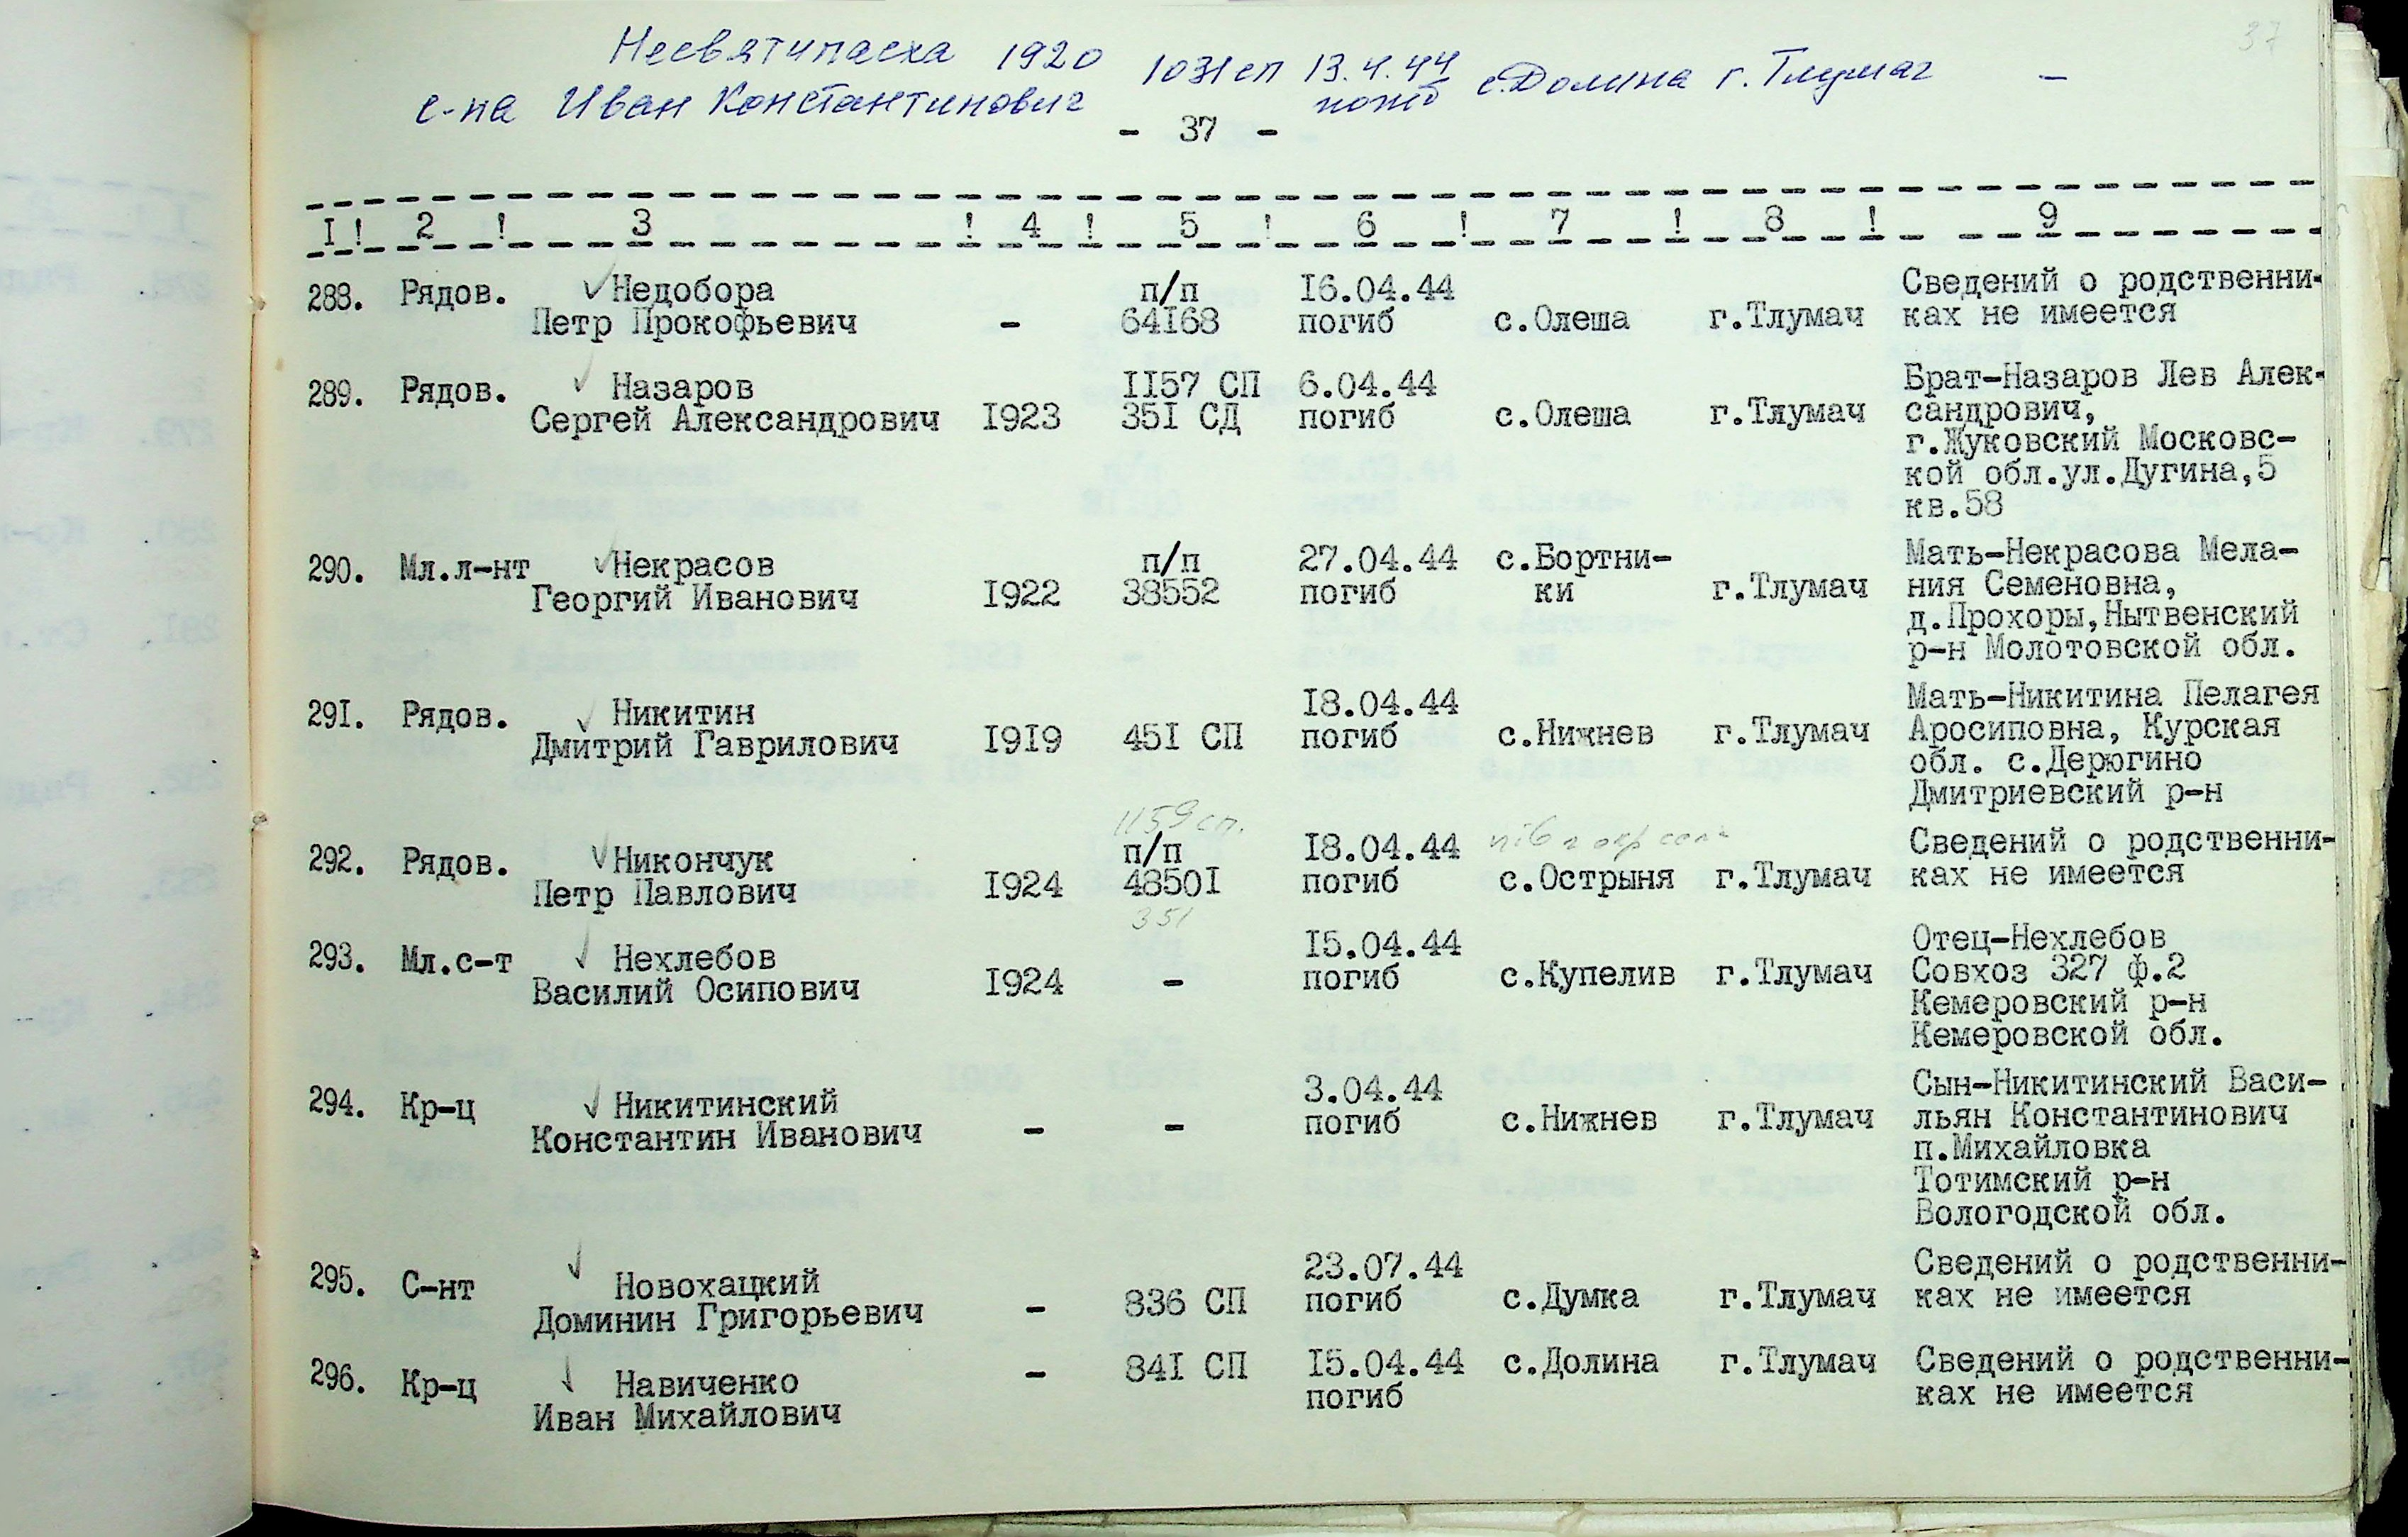 37
Несвятипасха 1920 1031 сп 13.4.44 с.Долина г.Тлумач -
с-на Иван Константинович погиб
- 37 -
I! 2 ! 3 ! 4 ! 5 ! 6 ! 7 ! 8 ! 9
288. Рядов. Недобора п/п I6.04.44 Сведений о родственни-
Петр Прокофьевич - 64I68 погиб с.Олеша г.Тлумач ках не имеется
289. Рядов. Назаров II57 СП 6.04.44 Брат-Назаров Лев Алек-
Сергей Александрович I923 35I СД погиб с.Олеша г.Тлумач сандрович,
г.Жуковский Московс-
кой обл.ул.Дугина,5
кв.58
290. Мл.л-нт Некрасов п/п 27.04.44 с.Бортни- Мать-Некрасова Мела-
Георгий Иванович I922 38552 погиб ки г.Тлумач ния Семеновна,
д.Прохоры,Нытвенский
р-н Молотовской обл.
29I. Рядов. Никитин I8.04.44 Мать-Никитина Пелагея
Дмитрий Гаврилович I9I9 45I СП погиб с.Нижнев г.Тлумач Аросиповна, Курская
обл. с.Дерюгино
Дмитриевский р-н
1159 сп.
292. Рядов. Никончук п/п I8.04.44 Сведений о родственни-
Петр Павлович I924 4850I погиб с.Острыня г.Тлумач ках не имеется
351
293. Мл.с-т Нехлебов I5.04.44 Отец-Нехлебов
Василий Осипович I924 - погиб с.Купелив г.Тлумач Совхоз 327 ф.2
Кемеровский р-н
Кемеровской обл.
294. Кр-ц Никитинский 3.04.44 Сын-Никитинский Васи-
Константин Иванович - - погиб с.Нижнев г.Тлумач льян Константинович
п.Михайловка
Тотимский р-н
Вологодской обл.
295. С-нт Новохацкий 23.07.44 Сведений о родственни-
Доминин Григорьевич - 836 СП погиб с.Думка г.Тлумач ках не имеется
296. Кр-ц Навиченко - 84I СП I5.04.44 с.Долина г.Тлумач Сведений о родственни-
Иван Михайлович погиб ках не имеется